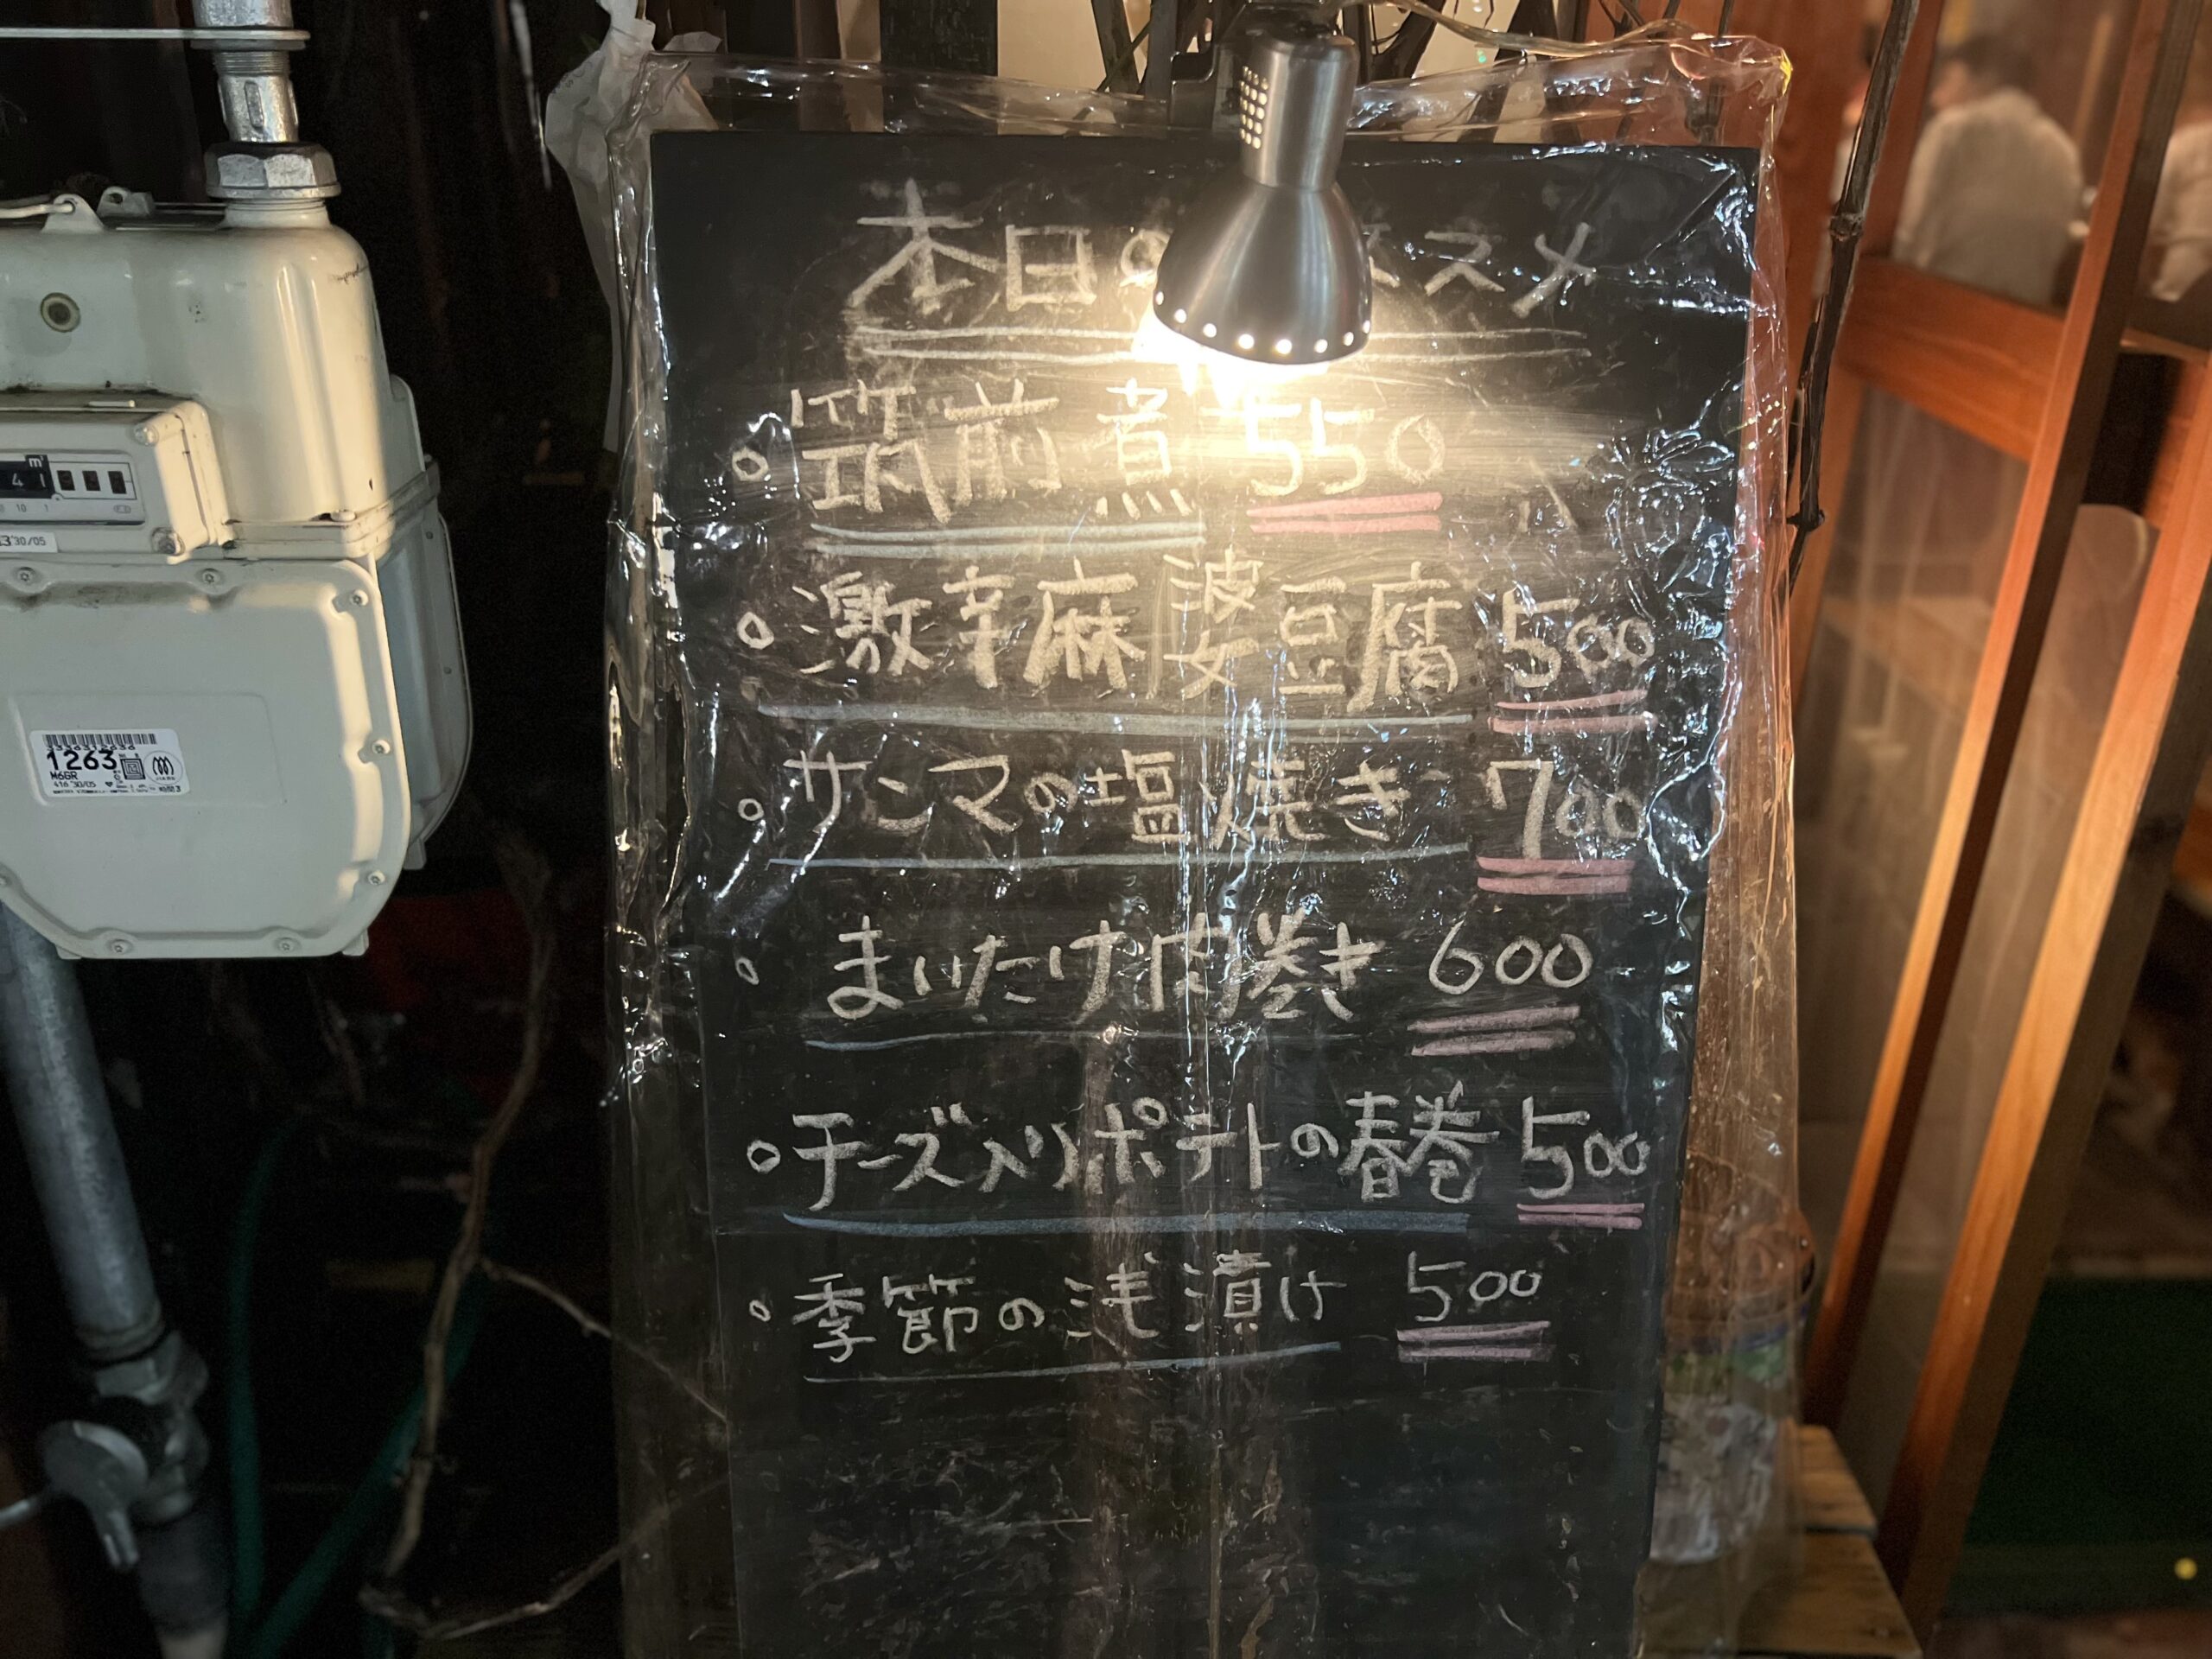 本日のオススメ
筑前煮 550
激辛麻婆豆腐 500
サンマの塩焼き 700
まいたけ肉巻き 600
チーズ入りポテトの春巻 500
季節の浅漬け 500
m³
4 1
10 1
30/05
1263
M6GR